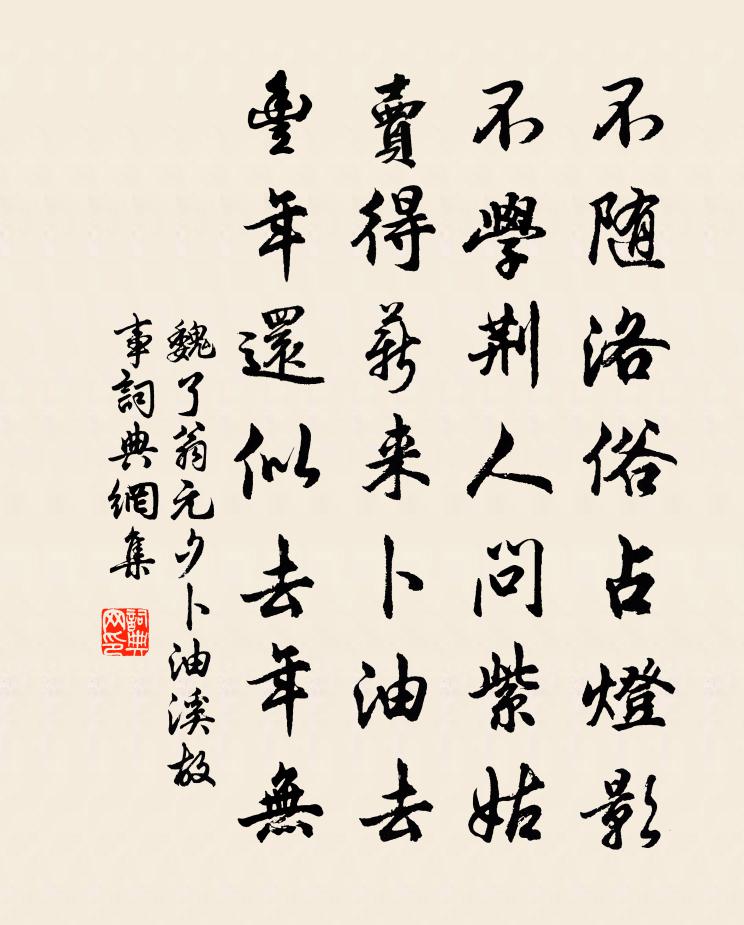 不随洛俗占燈影
不學荆人問紫姑
賣得薪来卜油去
豊年還似去年無
魏了翁元夕卜油溪故
事詞典網集
詞典
网印